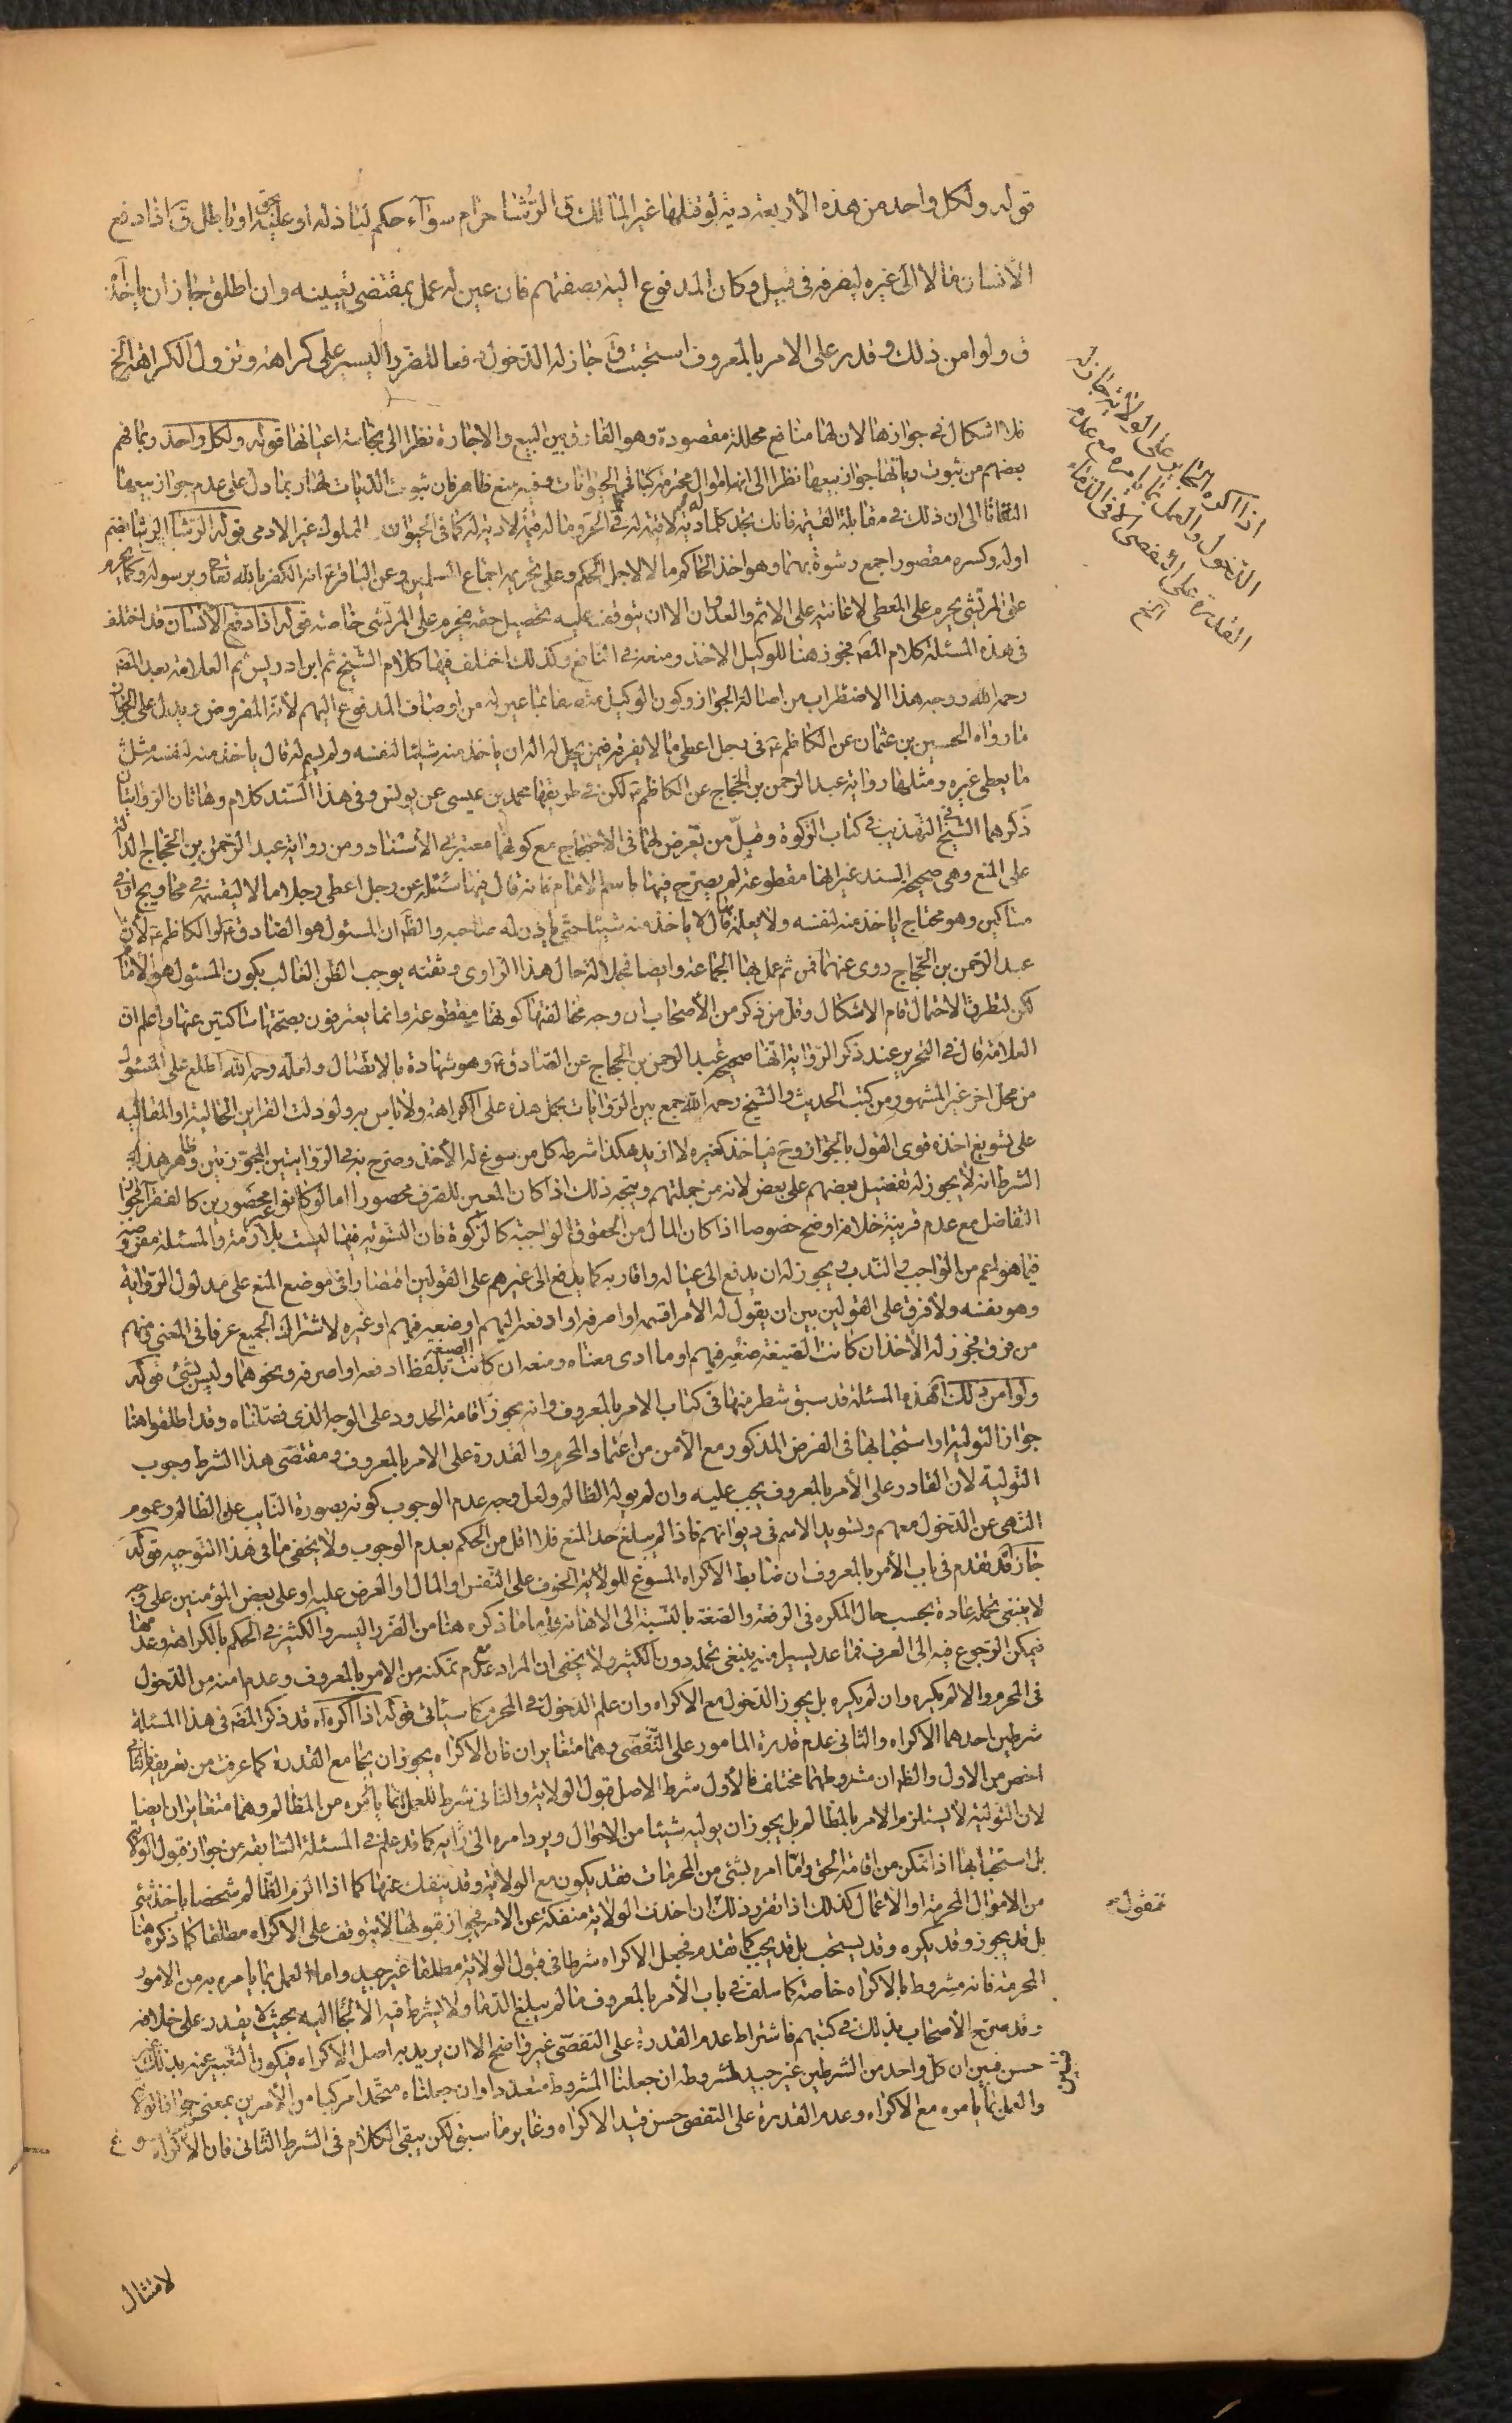 قوله ولكل واحد من هذه الأربعة دية لو قتلها غير المالك ق الرشا حرام سوآء حكم لباذله او عليه بحق او باطل ق اذا دفع
الانسان مالا الى غيره ليصرفه فى قبيل وكان المدفوع اليه بصفتهم فان عين له عمل بمقتضى تعيينه وان اطلق جاز ان ياخذ
ق ولو امن ذلك وقدر على الامر بالمعروف استحبت ق جاز له الدخول دفعا للضرر اليسير على كراهة وتزول الكراهة الخ
اذا اكره الجاير على الولاية جاز له
الدخول والعمل بما يامره مع عدم
القدرة على التفصى الا فى الدماء
الخ
فلا اشكال فى جوازها لان لها منافع محللة مقصودة وهو الفارق بين البيع والاجارة نظرا الى نجاسة اعيانها قوله ولكل واحد وبما فهم
بعضهم من ثبوت دياتها جواز بيعها نظرا الى انها اموال محترمة كباقى الحيوانات وفيه منع ظاهر فان ثبوت الديات لها ربما دل على عدم جواز بيعها
التفاتا الى ان ذلك فى مقابلة القيمة فانك تجد كلما له دية لا قيمة له كما فى الحر وما له قيمة لا دية له كما فى الحيوان المملوك غير الادمى قوله الرشا الرشا بضم
اوله وكسره مقصور اجمع رشوة بهما وهو اخذ الحاكم مالا لاجل الحكم وعلى تحريمه اجماع المسلمين وعن الباقر ع انه الكفر بالله تعالى وبرسوله وكما يحرم
على المرتشى يحرم على المعطى لاعانته على الاثم والعدوان الا ان يتوقف عليه تحصيل حقه فيحرم على المرتشى خاصة قوله اذا دفع الانسان قد اختلف
فى هذه المسئلة كلام المصة فجوز هنا للوكيل الاخذ ومنعه فى النافع وكذلك اختلف فيها كلام الشيخ ثم ابن ادريس ثم العلامة بعد المصة
رحمه الله ووجه هذا الاضطراب من اصالة الجواز وكون الوكيل متصفا بما عين له من اوصاف المدفوع اليهم لأنه المفروض ويدل على الجواز
ما رواه الحسين بن عثمان عن الكاظم ع فى رجل اعطى مالا يفرقه فيمن يحل له اله ان ياخذ منه شيئا لنفسه ولم يسم له قال ياخذ منه لنفسه مثل
ما يعطى غيره ومثلها رواية عبد الرحمن بن الحجاج عن الكاظم ع لكن فى طريقها محمد بن عيسى عن يونس وفى هذا السند كلام وهاتان الروايتان
ذكرهما الشيخ فى التهذيب فى كتاب الزكوة وقل من تعرض لهما فى الاحتجاج مع كونهما معتبرتى الأسناد ومن رواية عبد الرحمن بن الحجاج الدالة
على المنع وهى صحيحة السند غير انها مقطوعة لم يصرح فيها باسم الامام فانه قال فيها سئلته عن رجل اعطى رجلا مالا ليقسمه فى محاويج او فى
مساكين وهو محتاج اياخذ منه لنفسه ولا يعلمه قال لا ياخذ منه شيئا حتى ياذن له صاحبه والظ ان المسئول هو الصادق ع او الكاظم ع لأن
عبد الرحمن بن الحجاج روى عنهما فمن ثم عمل بها الجماعة وايضا فجلالة حال هذا الراوى وثقته يوجب الظن الغالب بكون المسئول هو الامام
لكن لتطرق الاحتمال قام الاشكال وقل من ذكر من الأصحاب ان وجه مخالفتها كونها مقطوعة وانما يعترفون بصحتها ساكتين عنها واعلم ان
العلامة قال فى التحرير عند ذكر الرواية انها صحيحة عبد الرحمن بن الحجاج عن الصادق ع وهو شهادة بالاتصال ولعله رحمه الله اطلع على المسئول
من محل اخر غير المشهور من كتب الحديث والشيخ رحمه الله جمع بين الروايات بحمل هذه على الكراهة ولا باس به ولو دلت القراين الحالية او المقالية
على تسويغ اخذه قوى القول بالجواز وح فياخذ كغيره لا ازيد هكذا شرطه كل من سوغ له الأخذ وصرح به فى الروايتين المجوزتين وظاهر هذا
الشرط انه لا يجوز له تفضيل بعضهم على بعض لانه من جملتهم ويتجه ذلك اذا كان المعين للصرف محصورا اما لو كانوا غير محصورين كالفقرآء فجواز
التفاضل مع عدم قرينة خلافه اوضح خصوصا اذا كان المال من الحقوق الواجبة كالزكوة فان التسوية فيها ليست بلازمة والمسئلة مفروضة
فيما هو اعم من الواجب والندب ويجوز له ان يدفع الى عياله واقاربه كما يدفع الى غيرهم على القولين اقتصارا فى موضع المنع على مدلول الرواية
وهو نفسه ولا فرق على القولين بين ان يقول له الأمر اقسمه او اصرفه او ادفعه اليهم او ضعه فيهم او غيره لاشتراك الجميع عرفا فى المعنى ومنهم
من فرق فجوز له الأخذ ان كانت الصيغة ضعه فيهم او ما ادى معناه ومنعه ان كانت الصيغة بلفظ ادفعه او اصرفه ونحوهما وليس بشئ قوله
ولو امن ذلك هذه المسئلة قد سبق شطر منها فى كتاب الامر بالمعروف وانه يجوز اقامة الحدود على الوجه الذى فصلناه وقد اطلقوا هنا
جواز التولية او استحبابها فى الفرض المذكور مع الأمن من اعتماد المحرم والقدرة على الامر بالمعروف ومقتضى هذا الشرط وجوب
التولية لأن القادر على الأمر بالمعروف يجب عليه وان لم يوله الظالم ولعل وجه عدم الوجوب كونه بصورة النايب عن الظالم وعموم
النهى عن الدخول معهم وتسويد الاسم فى ديوانهم فاذا لم يبلغ حد المنع فلا اقل من الحكم بعدم الوجوب ولا يخفى ما فى هذا التوجيه قوله
جاز قد تقدم فى باب الأمر بالمعروف ان ضابط الاكراه المسوغ للولاية الخوف على النفس او المال او العرض عليه او على بعض المؤمنين على وجه
لا ينبغى تحمله عادة بحسب حال المكره فى الرفعة والضعة بالنسبة الى الاهانة واما ما ذكره هنا من الضرر اليسير والكثير فى الحكم بالكراهة وعدمها
فيمكن الرجوع فيه الى العرف فما عد يسيرا منه ينبغى تحمله دون الكثير ولا يخفى ان المراد مع عدم تمكنه من الامر بالمعروف وعدم امنه من الدخول
فى المحرم والا لم يكره وان لم يكره بل يجوز الدخول مع الاكراه وان علم الدخول فى المحرم كما سيأتى قوله اذا اكره اه قد ذكر المصة فى هذا المسئلة
شرطين احدهما الاكراه والثانى عدم قدرة المامور على التفصى وهما متغايران فان الاكراه يجوز ان يجامع القدرة كما عرفت من تعريفه فالثانى
اخص من الاول والظ ان مشروطهما مختلف فالأول شرط الاصل قبول الولاية والثانى شرط للعمل بما يامره من المظالم وهما متغايران ايضا
لان التولية لا يستلزم الامر بالمظالم بل يجوز ان يوليه شيئا من الاموال ويرد امره الى رايه كما قد علم فى المسئلة السابقة من جواز قبول الولاية
بل استحبابها اذا تمكن من اقامة الحق واما امره بشئ من المحرمات فقد يكون مع الولاية وقد ينفك عنها كما اذا الزم الظالم شخصا باخذ شئ
من الاموال المحرمة او الأعمال كذلك اذا تقرر ذلك ان اخذت الولاية منفكة عن الامر فجواز قبولها لا يتوقف على الاكراه مطلقا كما ذكره هنا
فنقول
بل قد يجوز وقد يكره وقد يستحب بل قد يجب كما تقدم فجعل الاكراه شرطا فى قبول الولاية مطلقا غير جيد واما العمل بما يامره به من الامور
المحرمة فانه مشروط بالاكراه خاصة كما سلف فى باب الأمر بالمعروف ما لم يبلغ الدما ولا يشترط فيه الالجاء اليه بحيث لا يقدر على خلافه
وقد صرح الأصحاب بذلك فى كتبهم فاشتراط عدم القدرة على التفصى غير واضح الا ان يريد به اصل الاكراه فيكون التعبير عنه بذلك غير
حسن فتبين ان كل واحد من الشرطين غير جيد لمشروطه ان جعلنا المشروط متعددا وان جعلناه متحدا مركبا من الأمرين بمعنى جواز الولاية
والعمل بما يامره مع الاكراه وعدم القدرة على التفصى حسن قيد الاكراه وغاير ما سبق لكن يبقى الكلام فى الشرط الثانى فان الاكراه مسوغ
لامتثال